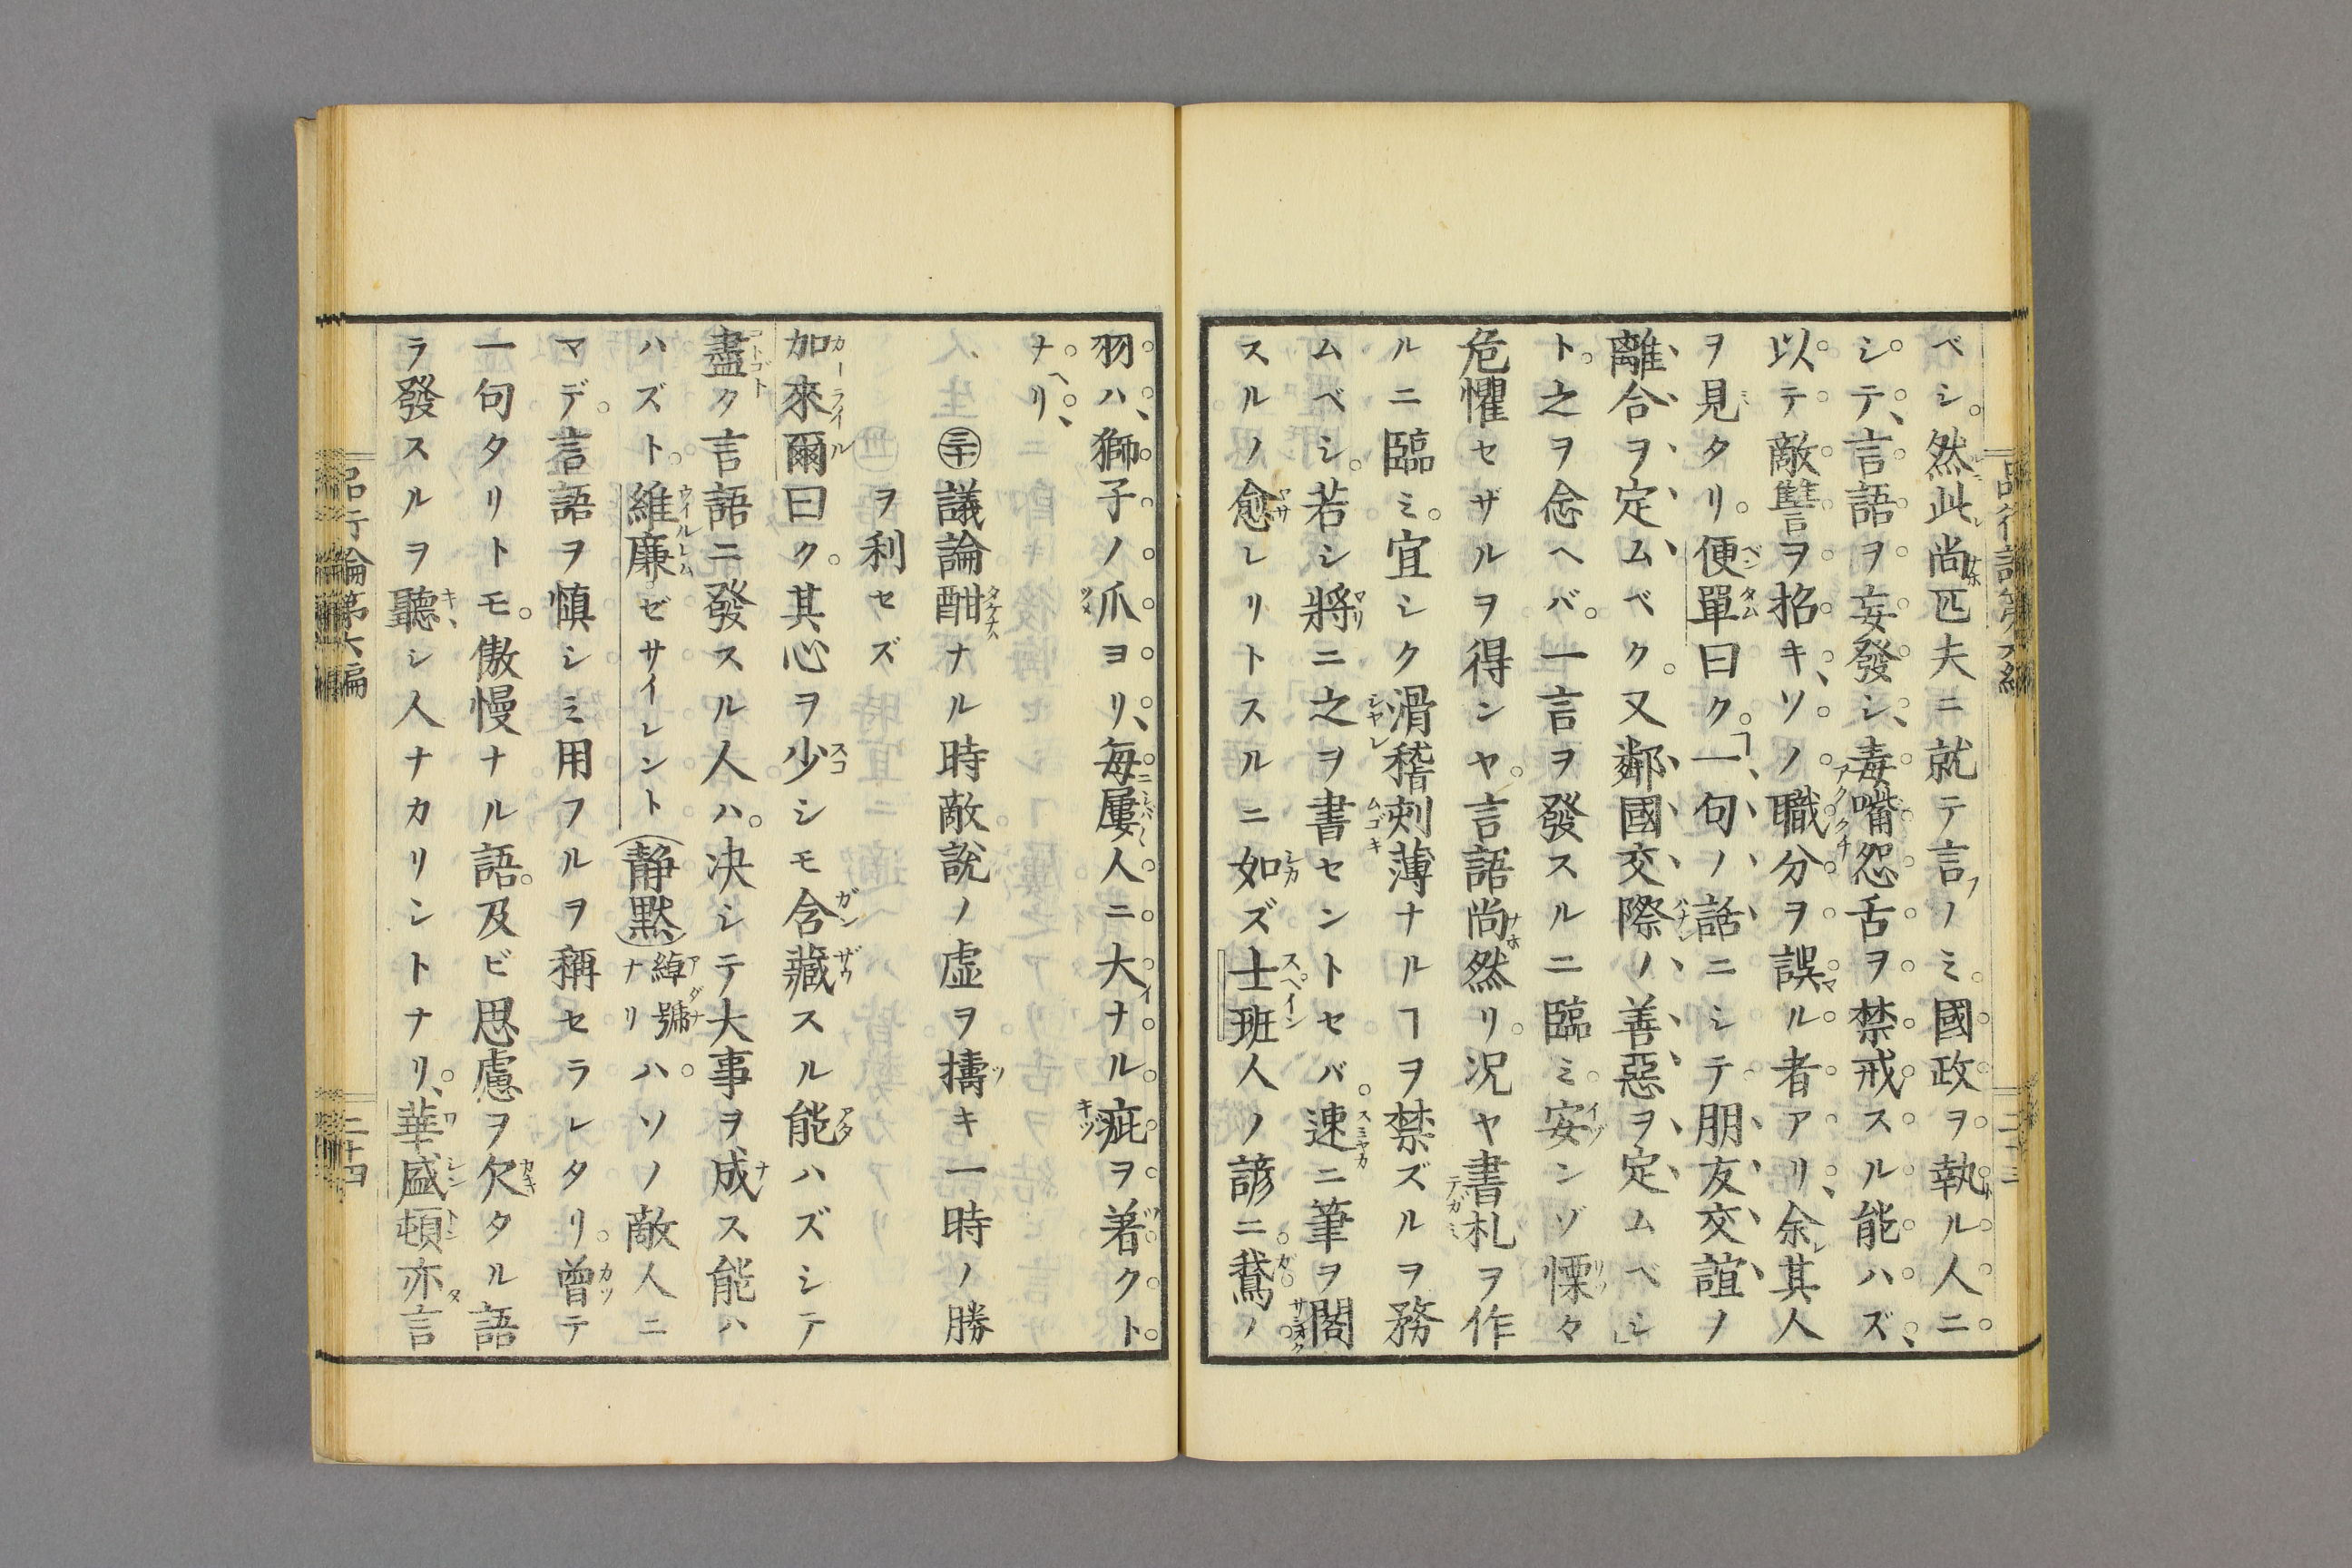 ベシ。然此尚匹夫ニ就テ言ノミ。國政ヲ執ル人ニ
シテ、言語ヲ妄發シ、毒嘴怨舌ヲ禁戒スル能ハズ、
以テ敵讐ヲ招キ、ソノ職分ヲ誤ル者アリ、余其人
ヲ見タリ。便單曰ク。「一句ノ話ニシテ、朋友交誼ノ
離合ヲ定ムベク。又鄰國交際ノ善惡ヲ定ムベシ」
ト。之ヲ念ヘバ。一言ヲ發スルニ臨ミ。安ンゾ慄々
危懼セザルヲ得ンヤ。言語尚然リ。况ヤ書札ヲ作
ルニ臨ミ。宜シク滑稽刻薄ナルヿヲ禁ズルヲ務
ムベシ。若シ將ニ之ヲ書セントセバ。速ニ筆ヲ閣
スルノ愈レリトスルニ如ズ。士班人ノ諺ニ。鵞ノ
羽ハ、獅子ノ爪ヨリ、毎屢人ニ大ナル疵ヲ著クト
ナリ、
㊂十 議論酣ナル時敵說ノ虛ヲ擣キ一時ノ勝
ヲ利セズ
加來爾曰ク。其心ヲ少シモ含藏スル能ハズシテ
盡ク言語ニ發スル人ハ。决シテ大事ヲ成ス能ハ
ハズト。維廉ゼサイレント(靜黙)綽號ナリハ。ソノ敵人ニ
マデ。言語ヲ愼シミ用フルヲ稱セラレタリ。曾テ
一句タリトモ。傲慢ナル語。及ビ思慮ヲ欠タル語
ラ發スルヲ聽シ人ナカリントナリ、華盛頓亦言
品行論第六編
二十四